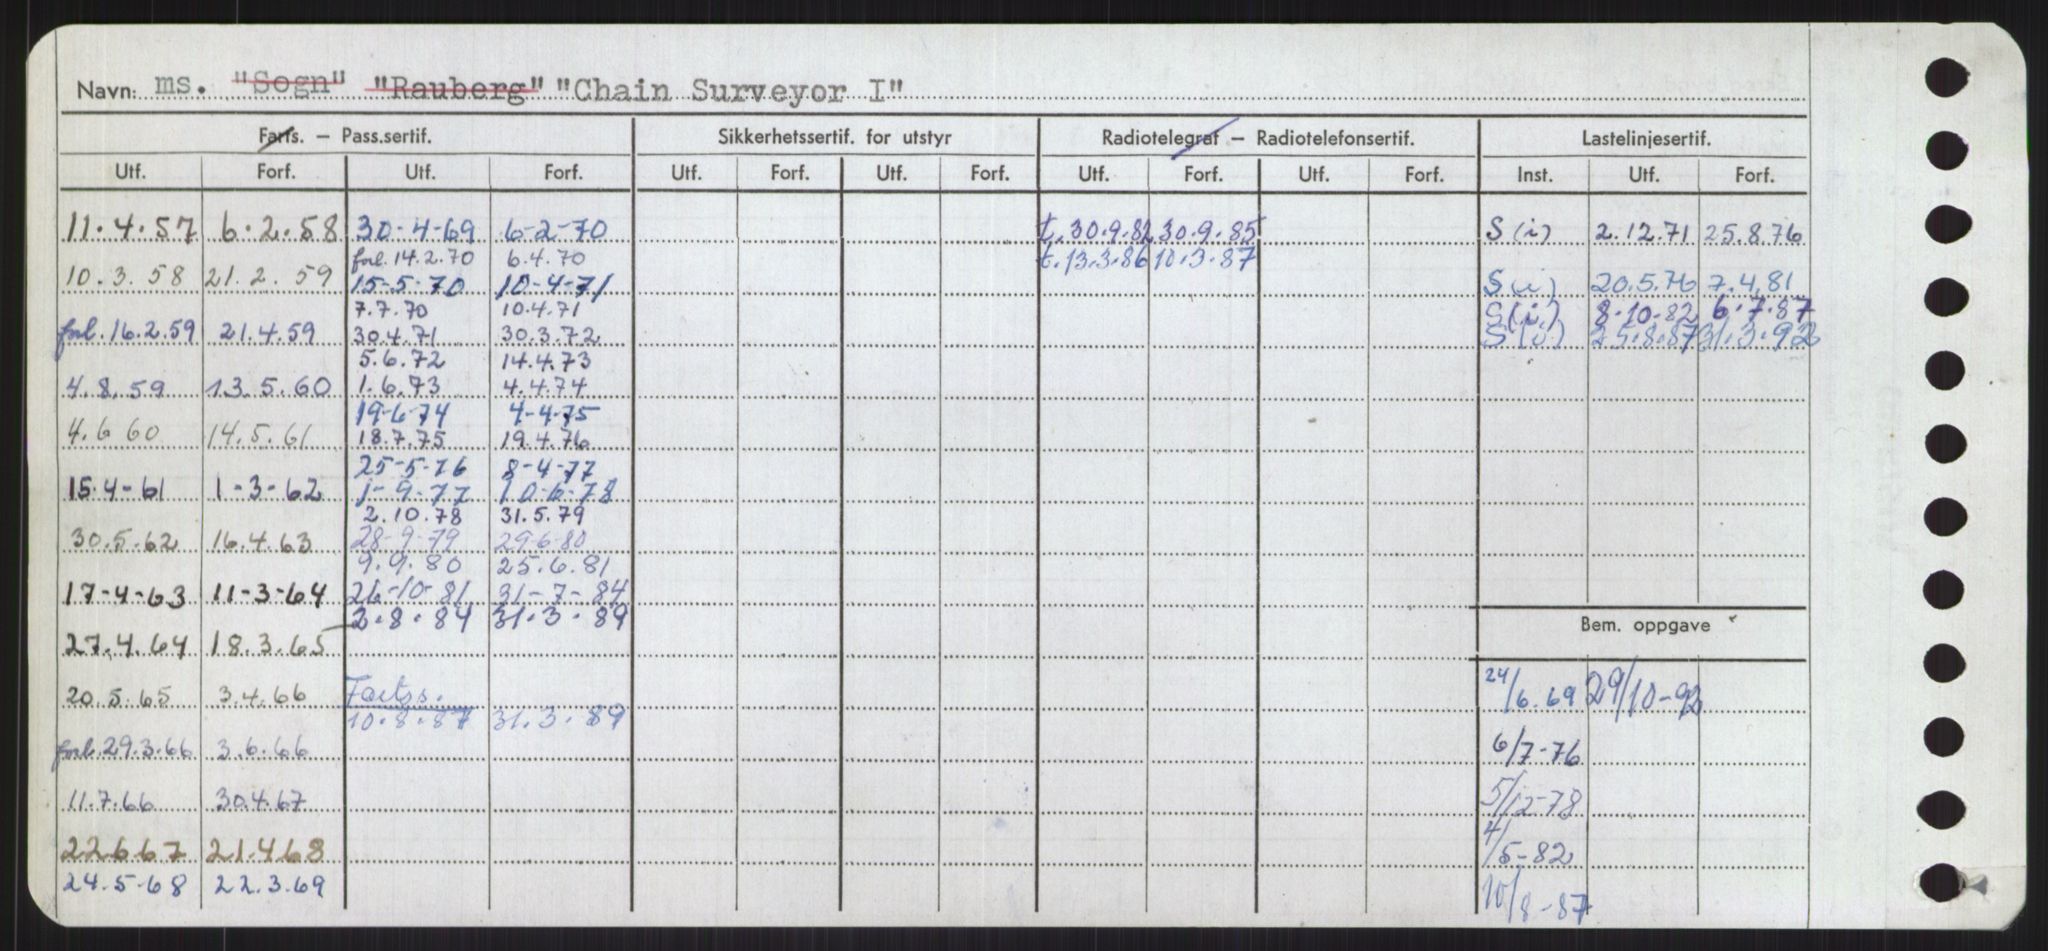 Navn: ms. "Sogn" "Rauberg" "Chain Surveyor I"
Farts. – Pass.sertif. Sikkerhetssertif. for utstyr Radiotelegraf – Radiotelefonsertif. Lastelinjesertif.
Utf. Forf. Utf. Forf. Utf. Forf. Utf. Forf. Utf. Forf. Utf. Forf. Inst. Utf. Forf.
11.4.57 6.2.58 30-4-69 6-2-70 t. 30.9.82 30.9.85 S (i) 2.12.71 25.8.76
forl. 14.2.70 6.4.70 t. 13.3.86 10.3.87
10.3.58 21.2.59 15-5-70 10-4-71 S (i) 20.5.76 7.4.81
7.7.70 10.4.71 S (i) 8.10.82 6.7.87
forl. 16.2.59 21.4.59 30.4.71 30.3.72 S (i) 25.8.87 31.3.92
5.6.72 14.4.73
4.8.59 13.5.60 1.6.73 4.4.74
19-6-74 4-4-75
4.6 60 14.5.61 18.7.75 19.4.76
25-5-76 8-4-77
15.4-61 1-3-62 1-9-77 10-6-78
2.10.78 31.5.79
30.5.62 16.4.63 28-9-79 29-6-80
9.9.80 25.6.81
17-4-63 11-3-64 26-10-81 31-7-84
2.8.84 31.3.89
Bem. oppgave
27.4.64 18.3.65
20.5.65 3.4.66 Fartss. 24/6.69 29/10-92
10.8.87 31.3.89
forl. 29.3.66 3.6.66 6/7-76
11.7.66 30.4.67 5/12-78
22667 21.468 4/5-82
24.5-68 22.3.69 10/8-87